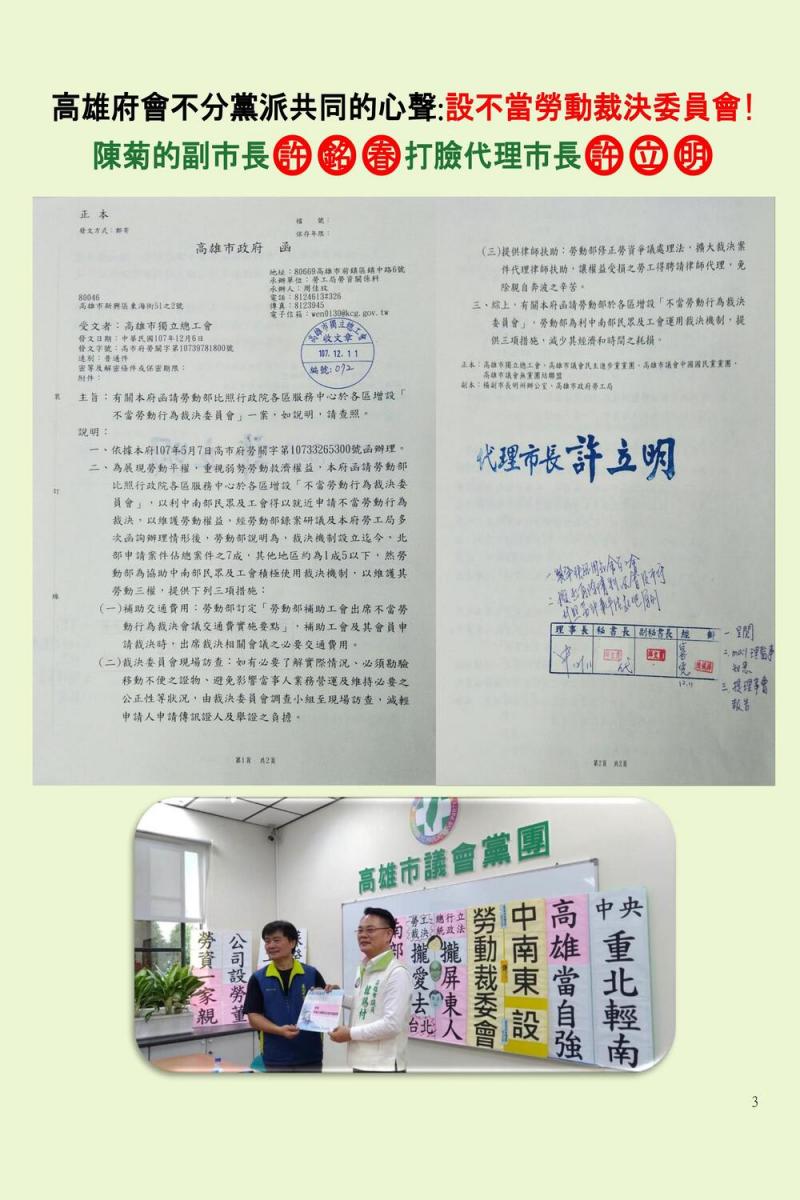 高雄府會不分黨派共同的心聲:設不當勞動裁決委員會!
陳菊的副市長許銘春打臉代理市長許立明
正本
發文方式：郵寄
檔　號：
保存年限：
高雄市政府　函
地址：80669高雄市前鎮區鎮中路6號
承辦單位：勞工局勞資關係科
承辦人：周佳玟
電話：8124613#326
傳真：8123945
電子信箱：wen0130@kcg.gov.tw
80046
高雄市新興區東海街51之2號
受文者：高雄市獨立總工會
發文日期：中華民國107年12月6日
發文字號：高市府勞關字第10739781800號
速別：普通件
密等及解密條件或保密期限：
附件：
高雄市獨立總工會
收文章
107.12.11
編號：072
主旨：有關本府函請勞動部比照行政院各區服務中心於各區增設「
不當勞動行為裁決委員會」一案，如說明，請查照。
說明：
一、依據本府107年5月7日高市府勞關字第10733265300號函辦理。
二、為展現勞動平權，重視弱勢勞動救濟權益，本府函請勞動部
比照行政院各區服務中心於各區增設「不當勞動行為裁決委
員會」，以利中南部民眾及工會得以就近申請不當勞動行為
裁決，以維護勞動權益，經勞動部錄案研議及本府勞工局多
次函詢辦理情形後，勞動部說明為，裁決機制設立迄今，北
部申請案件佔總案件之7成，其他地區約為1成5以下，然勞
動部為協助中南部民眾及工會積極使用裁決機制，以維護其
勞動三權，提供下列三項措施：
(一)補助交通費用：勞動部訂定「勞動部補助工會出席不當勞
動行為裁決會議交通費實施要點」，補助工會及其會員申
請裁決時，出席裁決相關會議之必要交通費用。
(二)裁決委員會現場訪查：如有必要了解實際情況、必須勘驗
移動不便之證物、避免影響當事人業務營運及維持必要之
公正性等狀況，由裁決委員會調查小組至現場訪查，減輕
申請人申請傳訊證人及舉證之負擔。
裝
訂
線
第1頁　共2頁
(三)提供律師扶助：勞動部修正勞資爭議處理法，擴大裁決案
件代理律師扶助，讓權益受損之勞工得聘請律師代理，免
除親自奔波之辛苦。
三、綜上，有關本府函請勞動部於各區增設「不當勞動行為裁決
委員會」，勞動部為利中南部民眾及工會運用裁決機制，提
供三項措施，減少其經濟和時間之耗損。
正本：高雄市獨立總工會、高雄市議會民主進步黨黨團、高雄市議會中國國民黨黨團、
高雄市議會無黨團結聯盟
副本：楊副市長明州辦公室、高雄市政府勞工局
代理市長許立明
理事長 秘書長 副秘書長 經辦
一 呈閱
二、mail理監事
知悉
三、提理事會
報告
第2頁　共2頁
高雄市議會黨團
勞資一家親
公司設勞董
勞工裁決攏愛去台北
總統行政立法攏屏東人
勞動裁委會
中南東設
高雄當自強
中央重北輕南
3